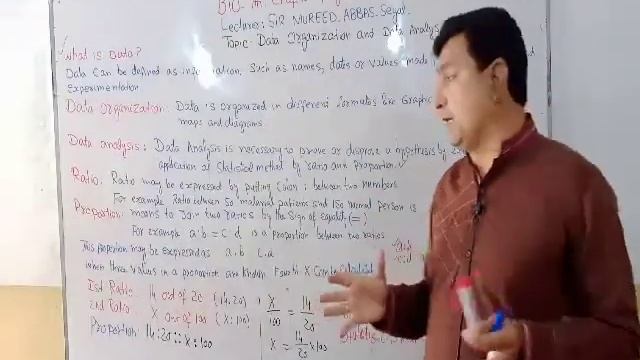 Lecturer: SIR MUREED. ABBAS. Segal.
Topic: Data Organization and Data Analys
What is Data?
Data can be defined as info mation. Such as names, dates or values made
Experimentation.
Data organization: Data is organized in different formates like Graphic
maps and diagrams.
Data analysis: Data Analysis is necessary to prove or disprove a hypothesis by
application of Statistical method by ratio and Proportion.
Ratio: Ratio may be expressed by putting Colon : between two numbers.
For example Ratio between 50 malarial patients and 150 normal person is
Proportion: means to Join two ratios by the Sign of equality (=)
For example a:b = c:d is a proportion between two ratios
This proportion may be expressed as a:b
when three values in a proportion are known Fourth X Can be Calculated
Ist Ratio 14 out of 20 (14:20)
2nd Ratio X out of 100 (X:100)
Proportion 14:20 :: X:100
X/100 = 14/20
X = 14/20 x 100